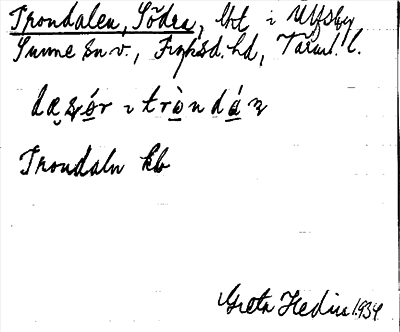 Trondalen, Södra, bt i Ulfsby
Sunne sn v., Fryksd. hd, Värml. l.
i tròndáṇ
Trondaln kb
Greta Hedin 1934